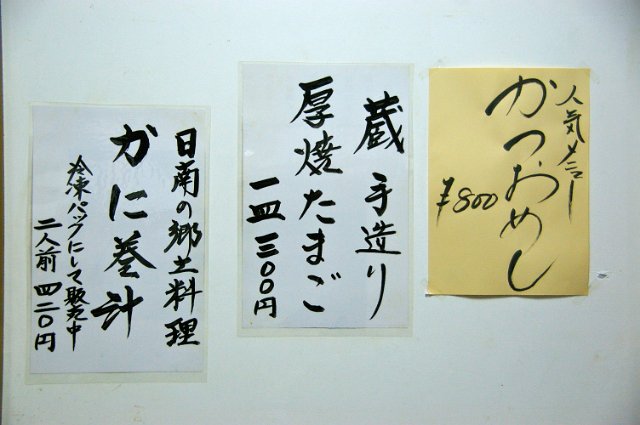 人気メニュー
かつおめし
¥800
蔵 手造り
厚焼たまご
一皿 三〇〇円
日南の郷土料理
かに巻汁
冷凍パックにして販売中
二人前 四二〇円